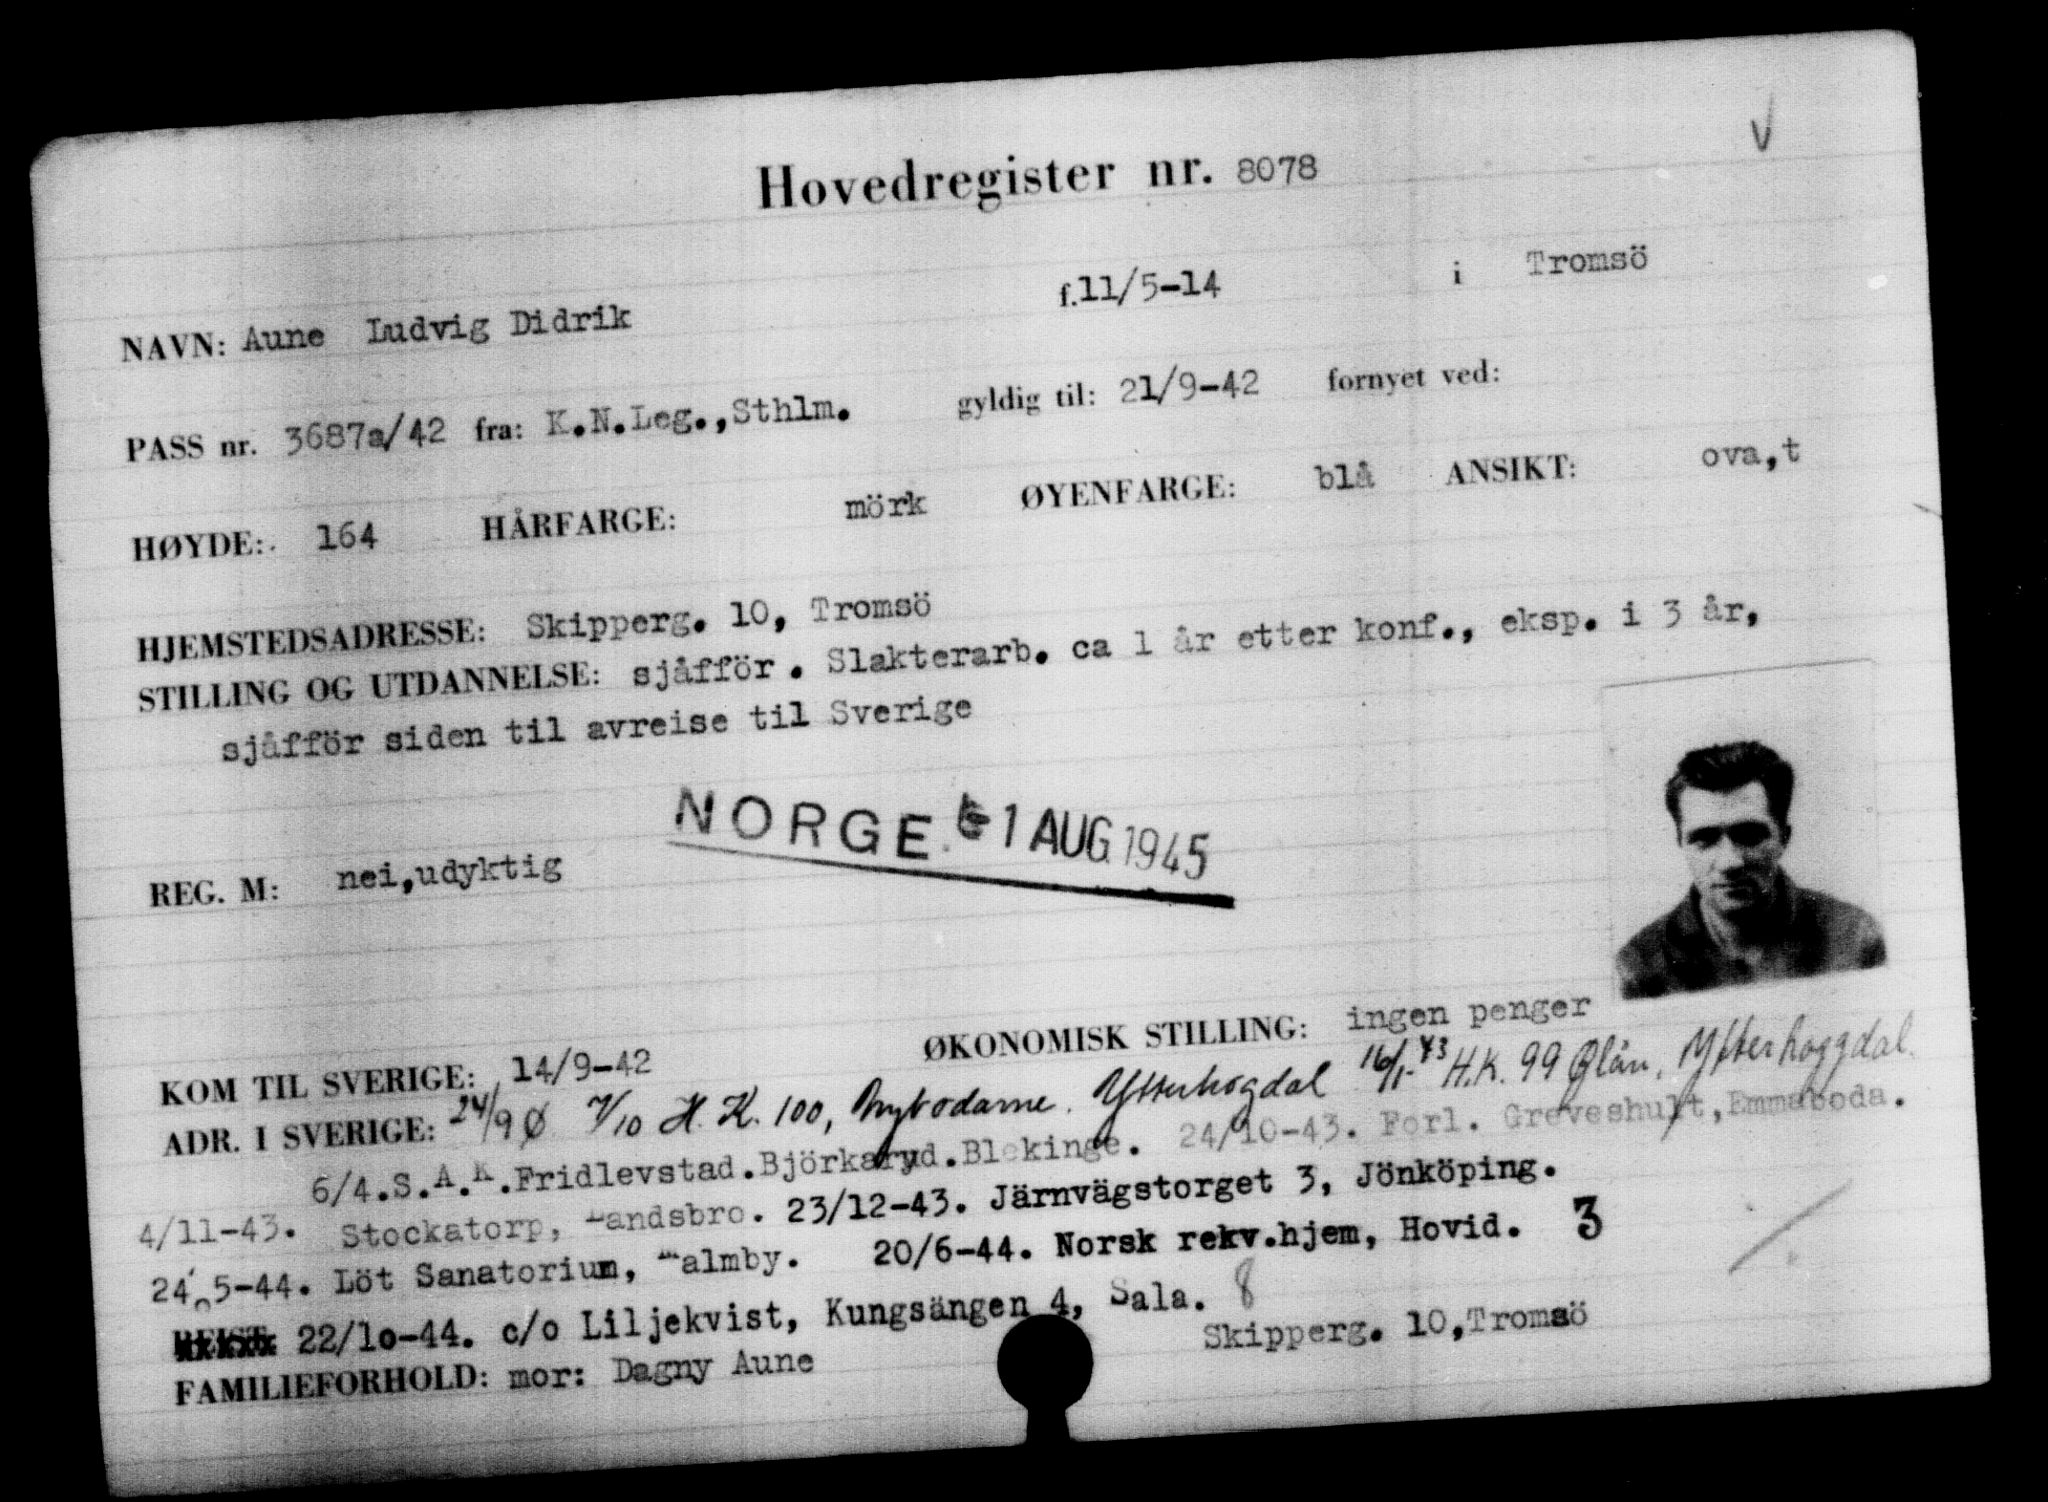 V
Hovedregister nr. 8078
NAVN: Aune Ludvig Didrik f.11/5-14 i Tromsö
PASS nr. 3687a/42 fra: K.N.Leg.,Sthlm. gyldig til: 21/9-42 fornyet ved:
HØYDE: 164 HÅRFARGE: mörk ØYENFARGE: blå ANSIKT: ova,t
HJEMSTEDSADRESSE: Skipperg. 10, Tromsö
STILLING OG UTDANNELSE: sjåfför. Slakterarb. ca 1 år etter konf., eksp. i 3 år,
sjåfför siden til avreise til Sverige
NORGE 1 AUG 1945
REG. M: nei,udyktig
ØKONOMISK STILLING: ingen penger
KOM TIL SVERIGE: 14/9-42
ADR. I SVERIGE: 24/9 Ø 7/10 H.K. 100, Ytterhogdal 16/1-43 H.K. 99 Ytterhoggdal.
6/4.S.A.K.Fridlevstad.Björkaryd.Blekinge. 24/10-43. Forl. Greveshult,Emmaboda.
4/11-43. Stockatorp, andsbro. 23/12-43. Järnvägstorget 3, Jönköping.
24/5-44. Löt Sanatorium, almby. 20/6-44. Norsk rekv.hjem, Hovid. 3
REIST: 22/10-44. c/o Liljekvist, Kungsängen 4, Sala. 8
FAMILIEFORHOLD: mor: Dagny Aune Skipperg. 10,Tromsö